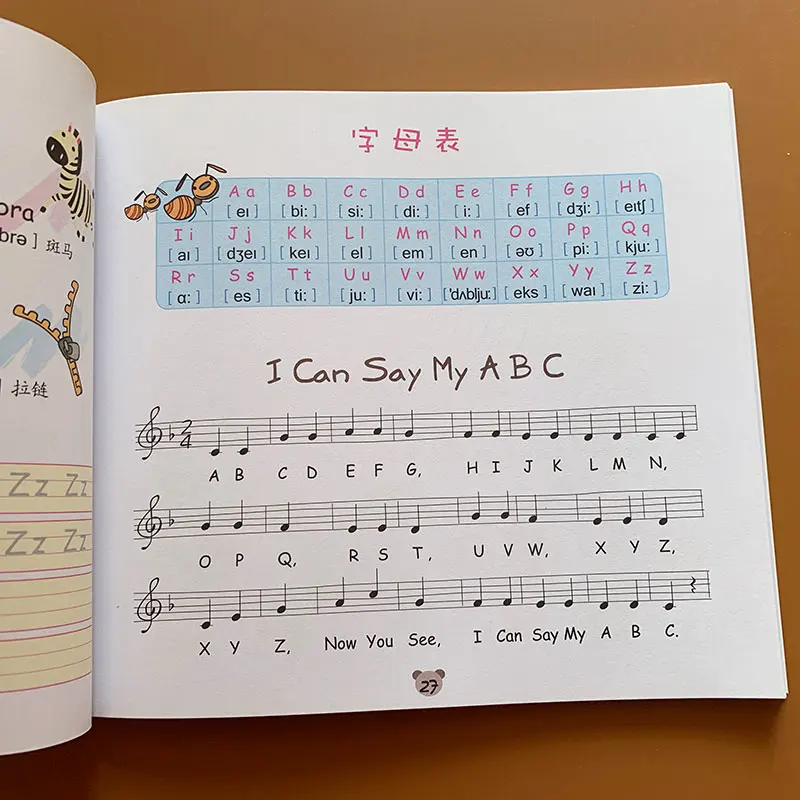 ora
brə ] 斑马
] 拉链
Zz Zz
Zz Zz
字母表
Aa Bb Cc Dd Ee Ff Gg Hh
[ eɪ ] [ bi: ] [ si: ] [ di: ] [ i: ] [ ef ] [ dʒi: ] [ eɪtʃ ]
Ii Jj Kk Ll Mm Nn Oo Pp Qq
[ aɪ ] [ dʒeɪ ] [ keɪ ] [ el ] [ em ] [ en ] [ əʊ ] [ pi: ] [ kju: ]
Rr Ss Tt Uu Vv Ww Xx Yy Zz
[ ɑ: ] [ es ] [ ti: ] [ ju: ] [ vi: ] ['dʌblju:] [ eks ] [ waɪ ] [ zi: ]
I Can Say My A B C
2
4
A B C D E F G, H I J K L M N,
O P Q, R S T, U V W, X Y Z,
X Y Z, Now You See, I Can Say My A B C.
27